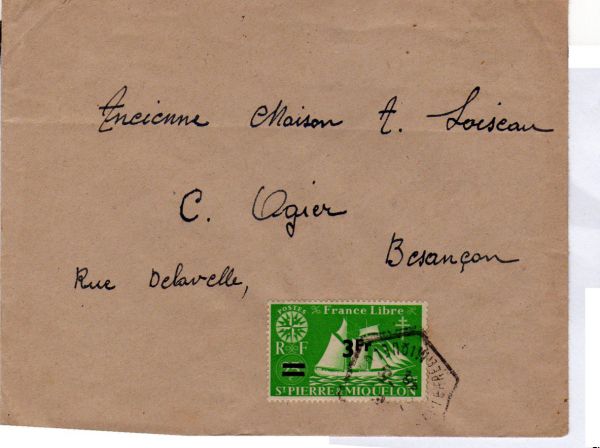 Ancienne Maison A. Loiseau
C. Ogier
Besançon
Rue Delavelle,
POSTES
France Libre
RF
3Fr
ST PIERRE & MIQUELON